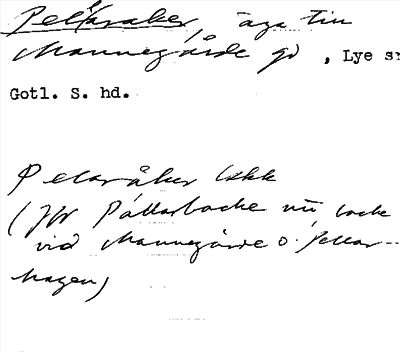 Pellaråker, äga till
Mannegårde gd, Lye sn
Gotl. S. hd.
Pelaråker
(Jfr Pållarbacke nu backe
vid Mannegårde o. Pellar-
hagen)